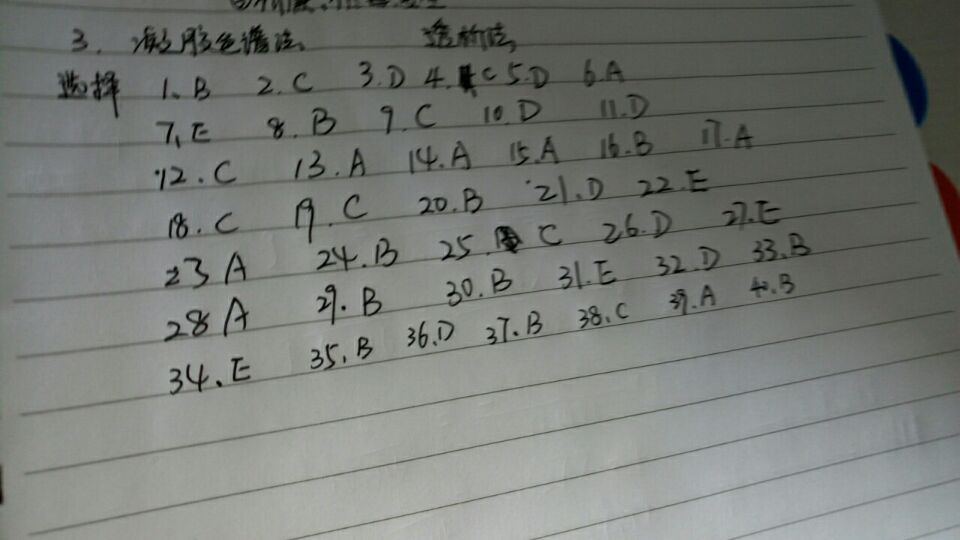 3. 凝胶色谱法、 透析法
选择 1、B 2. C 3.D 4. C 5.D 6.A
7、E 8. B 9. C 10. D 11. D
12. C 13. A 14. A 15. A 16. B 17. A
18. C 19. C 20. B 21. D 22. E
23 A 24. B 25. C 26. D 27. E
28 A 29. B 30. B 31. E 32. D 33. B
34. E 35. B 36. D 37. B 38. C 39. A 40. B